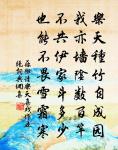 樂天種竹自成園
我亦墻陰數百竿
不共伊家斗多少
也能不畏雪霜寒